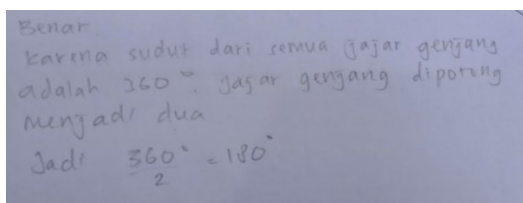 Benar
karena sudut dari semua jajar genjang
adalah 360°. jajar genjang dipotong
menjadi dua
Jadi 360°/2 = 180°